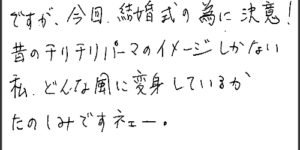 ですが、今回、結婚式の為に決意!
昔のチリチリパーマのイメージしかない
私、どんな風に変身しているか
たのしみですネェー。